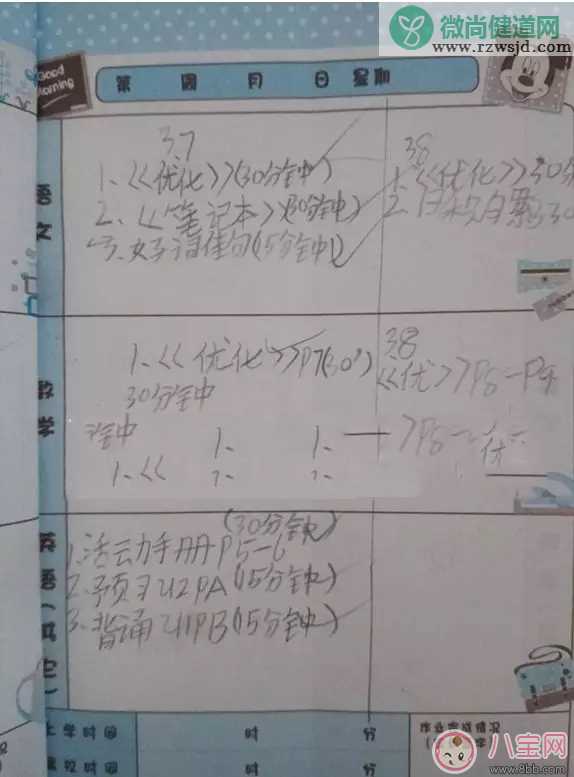 微尚健道网
www.rzwsjd.com
Good
morning
第 周 月 日 星期
语文
3.7
1、《优化》(30分钟)
2、《笔记本》(30分钟)
3、好词佳句(15分钟)
38
1、《优化》30分
2、日积月累30
数学
1、《优化》P7(30')
30分钟
钟
1、 1、
1、《
38
《优》P8-P9
》P8-
英语(其它)
(30分钟)
1.活动手册P5-6
2.预习U2PA(15分钟)
3.背诵U1PB(15分钟)
上学时间 时 分
离校时间 时 分
作业完成情况
八宝网
www.8bb.com